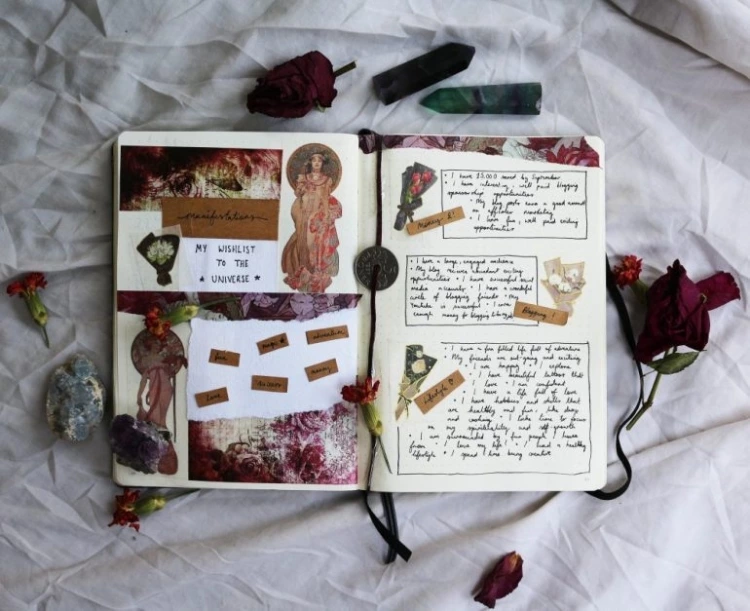 manifestations
MY WISHLIST
TO THE
★ UNIVERSE ★
fun
magic ★
adventure
love
success
money
• I have $3,000 saved by September
• I have interesting, well paid blogging
sponsorship opportunities
• My blog posts earn a good amount
affiliate marketing
• I have fun, well paid writing
opportunities
Money
• I have a large, engaged audience
• My blog receives abundant exciting
opportunities • I have successful social
media accounts • I have a wonderful
circle of blogging friends • My
YouTube is successful • I make
enough money to blogging
Blogging !
• I have a fun filled life full of adventure
• My friends are outgoing and exciting
• I am happy • I explore
• I have beautiful tattoos that
I love • I am confident
• I have a life full of love
• I have hobbies and skills that
are healthy and fun, like
and • I take time to focus
on my spirituality and self-growth
• I am surrounded by fun people
• I love my life! • I lead a healthy
lifestyle • I spend time being creative
Lifestyle